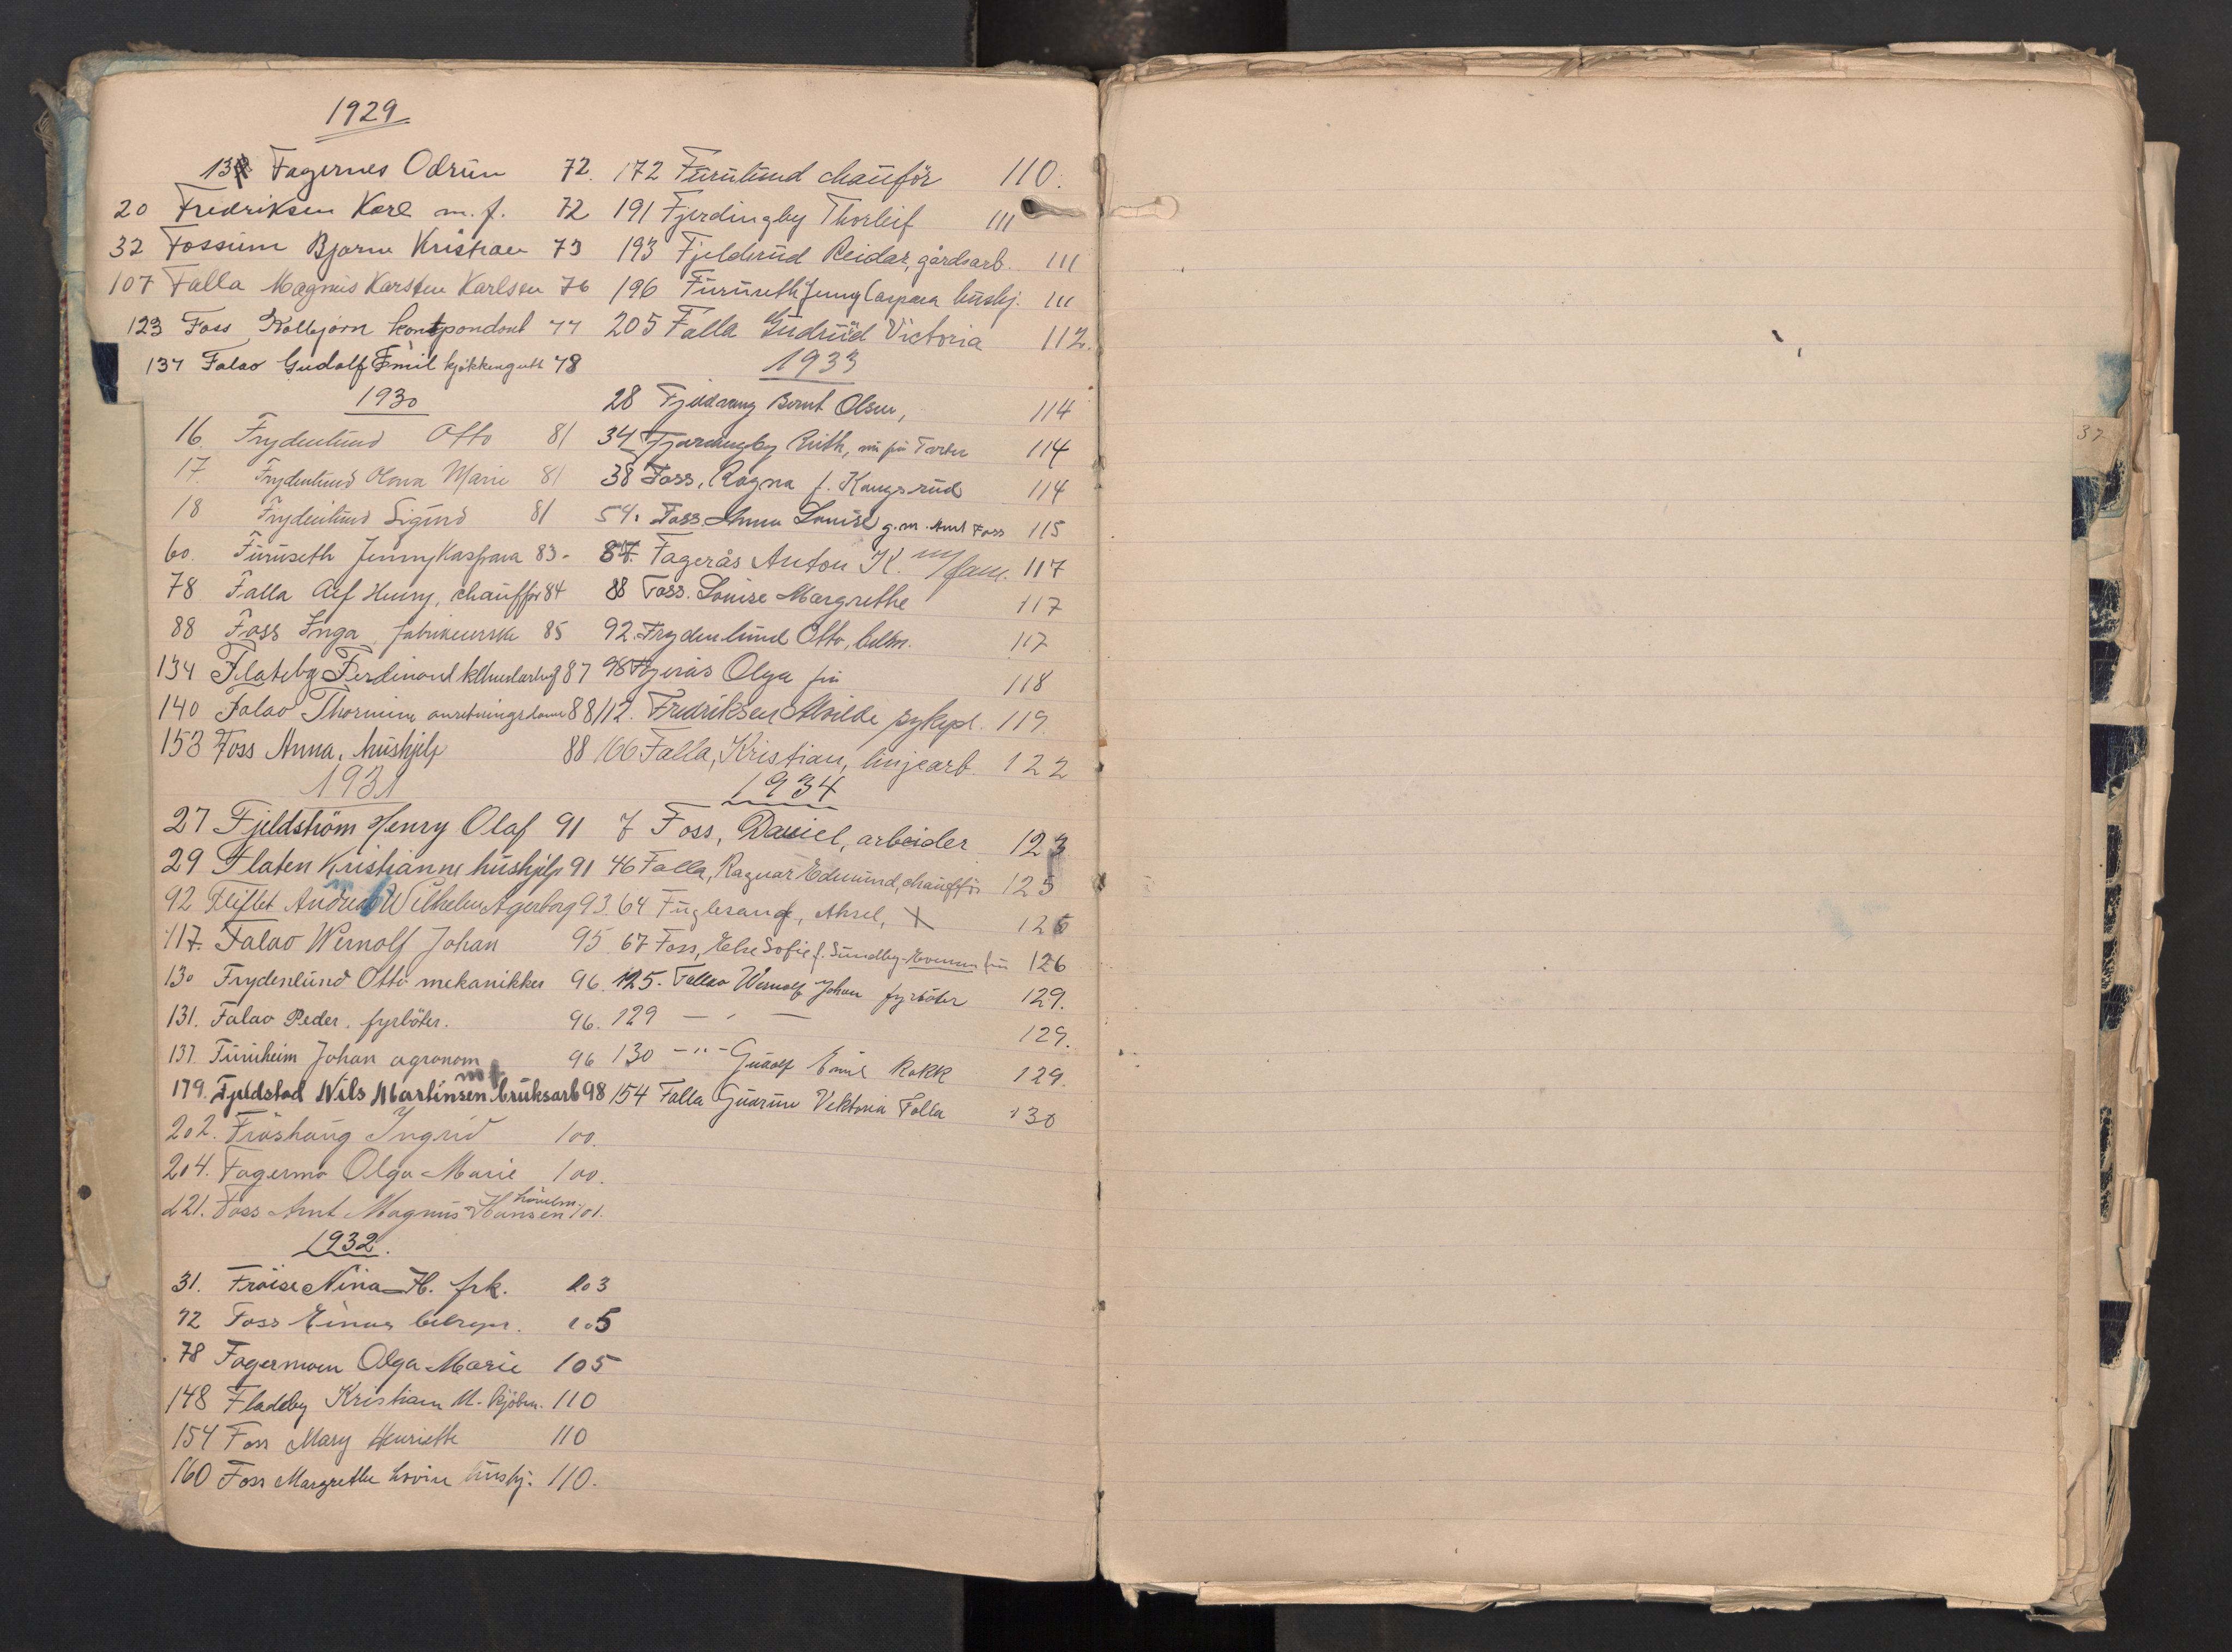 1929
13 Fagernes Odrun 72.
20 Fredriksen Karl m.f. 72
32 Fossum Bjarne Kristian 73
107 Falla Magnus Karsten Karlsen 76
123 Foss Kolbjørn 77
137 Falao Gudolf Emil kjøkkengutt 78
1930
16. Frydenlund Otto 81
17. Frydenlund Marie 81
18 Frydenlund Sigurd 81
60. Furuseth Jenny Kaspara 83-
78 Falla Alf Henry, chaufför 84
88 Foss Inga fabrikarerske 85
134 Flateby Ferdinant 87
140 Falao Thormine anretningsdame 88
153 Foss Anna. hushjelp 88
1931
27 Fjeldström Henry Olaf 91
29 Flaten Kristianne hushjelp 91
92 Fliflet Andreas Wilhelm Agerborg 93.
117. Falao Wernolf Johan 95
130 Frydenlund Otto mekanikker 96.
131. Falao Peder. fyrböter. 96.
137. Furuheim Johan agronom 96
179. Fjeldstad Nils Martinsen m f bruksarb 98
202. Fröshaug Ingrid 100.
204. Fagermo Olga Marie 100.
221. Foss Arnt Magnus Hansen 101.
1932.
31. Fröise Nina H. frk. 103
72 Foss Einar bilrepr. 105
78 Fagermoen Olga Marie 105
148 Fladeby Kristian M. kjöbm. 110
154 Foss Mary Henriette 110
160 Foss Margrethe Lovise hushj. 110.
172 Furulund chauför 110.
191 Fjerdingby Thorleif 111
193 Fjelderud Reidar, gårdsarb. 111
196 Furuseth Jenny Caspara hushj. 111
205 Falla Gudrud Victoria 112.
1933
28 Fjeldvang Bernt Olsen, 114
34 Fjerdingby Ruth, 114
38 Foss, Ragna f. Kangsrud 114
54. Foss. Anna Louise g.m. Arnt Foss 115
87. Fagerås Anton K. m/fam. 117
88 Foss. Louise Margrethe 117
92. Frydenlund Otto, 117
98 Olga fru 118
112. Fredriksen Alvilde sykepl. 119.
166 Falla, Kristian, linjearb. 122
1934
7 Foss, Daniel, arbeider 123
46 Falla, Ragnar Edmund, chaufför 125
64 Fuglesang, Aksel, X 126
67 Foss, Else Sofie f. Sundby-Evensen fru 126
125. Fallao Wernolf Johan fyrböter 129.
129 — " — 129.
130 —"— Gudolf Emil Kokk 129.
154 Falla Gudrun Viktoria Falla 130
37